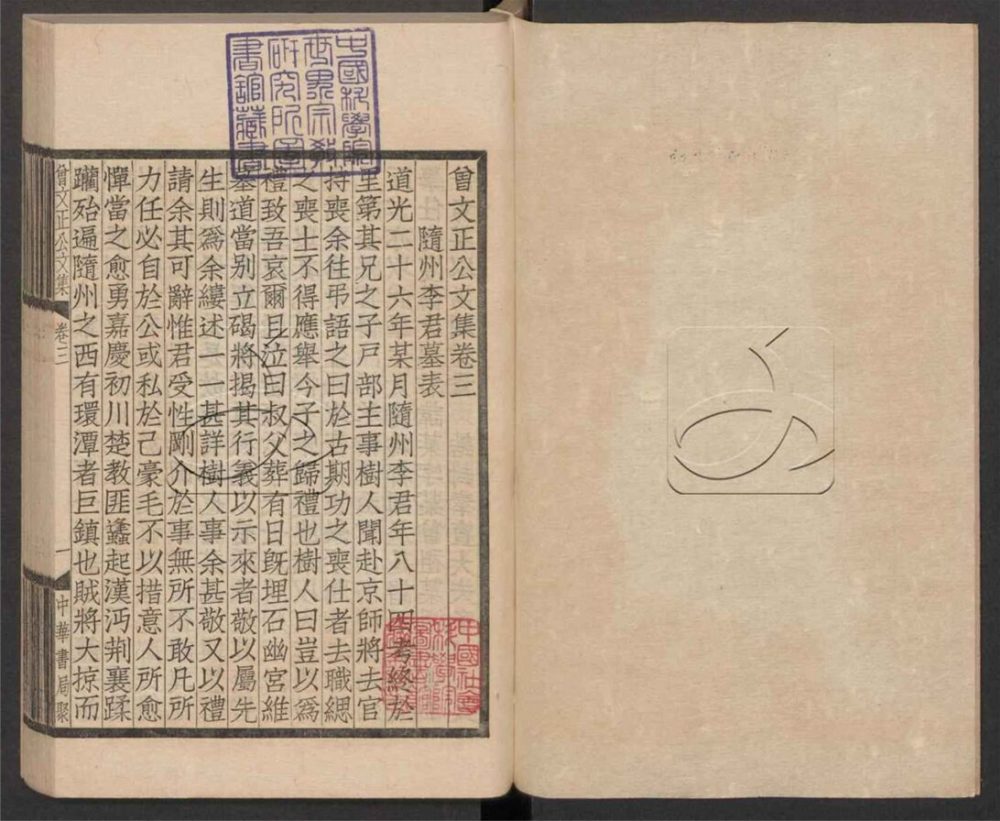 中國科學院
世界宗教
研究所圖
書館藏書
曾文正公文集卷三
隨州李君墓表
道光二十六年某月隨州李君年八十四考終於
里第其兄之子戶部主事樹人聞赴京師將去官
持喪余往弔語之曰於古期功之喪仕者去職緦
之喪士不得應舉今子之歸禮也樹人曰豈以爲
禮致吾哀爾且泣曰叔父葬有日旣埋石幽宮維
墓道當別立碣將揭其行義以示來者敬以屬先
生則爲余縷述一一甚詳樹人事余甚敬又以禮
請余其可辭惟君受性剛介於事無所不敢凡所
力任必自於公或私於己豪毛不以措意人所愈
憚當之愈勇嘉慶初川楚教匪蠭起漢沔荆襄蹂
躪殆遍隨州之西有環潭者巨鎮也賊將大掠而
曾文正公文集 卷三 一 中華書局聚
中國社會